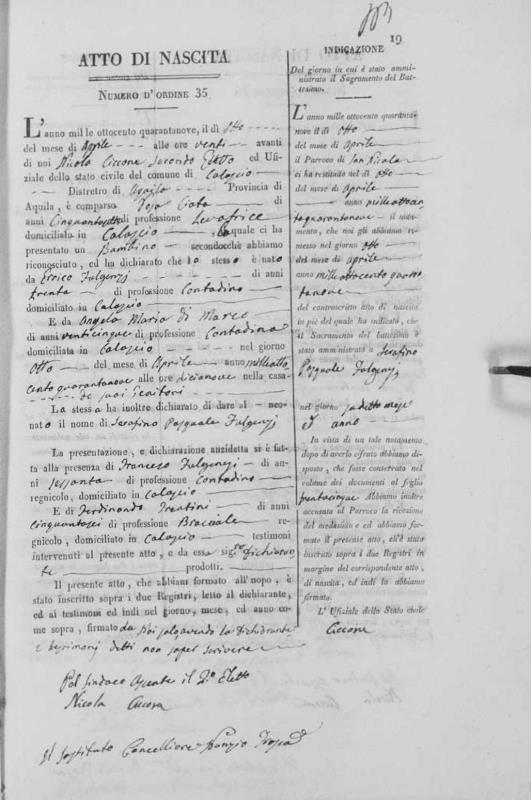 19
ATTO DI NASCITA
NUMERO D'ORDINE 35
L'anno mille ottocento quarantanove, il dì otto
del mese di Aprile alle ore venti avanti
di noi Nicola Ciccone Secondo Eletto ed Ufi-
ziale dello stato civile del comune di Calascio
Distretto di Aquila Provincia di
Aquila, è comparsa di
anni Cinquantotto di professione Levatrice
domiciliata in Calascio la quale ci ha
presentato un Bambino secondocchè abbiamo
riconosciuto, ed ha dichiarato che lo stesso è nato
da Errico Fulgenzj di anni
trenta di professione Contadino
domiciliato in Calascio
E da Angela Maria di Marco
di anni venticinque di professione Contadina
domiciliata in Calascio nel giorno
otto del mese di Aprile anno mille otto
cento quarantanove alle ore diciannove nella casa
de suoi Genitori
La stessa ha inoltre dichiarato di dare al neo-
nato il nome di Serafino Pasquale Fulgenzj
La presentazione, e dichiarazione anzidetta si è fat-
ta alla presenza di Francesco Fulgenzj di an-
ni sessanta di professione Contadino
regnicolo, domiciliato in Calascio
E di Ferdinando Trentini di anni
cinquantasei di professione Bracciale re-
gnicolo, domiciliato in Calascio testimoni
intervenuti al presente atto, e da essa Dichiaran
te prodotti.
Il presente atto, che abbiamo formato all'uopo, è
stato inscritto sopra i due Registri, letto al dichiarante,
ed ai testimoni ed indi nel giorno, mese, ed anno co-
me sopra, firmato da Noi la Dichiarante
e testimonj detti non saper scrivere
Pel Sindaco Assente il 2º Eletto
Nicola Ciccone
Il Sostituto Cancelliere
INDICAZIONE
Del giorno in cui è stato ammi-
nistrato il Sacramento del Bat-
tesimo.
L'anno mille ottocento quaranta-
nove il dì otto
del mese di Aprile
il Parroco di San Nicola
ci ha restituito nel dì otto
del mese di Aprile
anno mille ottocen
toquarantanove il notа-
mento, che noi gli abbiamo ri-
messo nel giorno otto
del mese di Aprile
anno mille ottocento quaran
tanove
del controscritto atto di nascita
in piè del quale ha indicato, che
il Sacramento del battesimo è
stato amministrato a Serafino
Pasquale Fulgenzj
nel giorno sudetto mese
ed anno
In vista di un tale notamento
dopo di averlo cifrato abbiamo di-
sposto, che fosse conservato nel
volume dei documenti al foglio
trentacinque Abbiamo inoltre
accusato al Parroco la ricezione
del medesimo e ed abbiamo for-
mato il presente atto, ch'è stato
inscritto sopra i due Registri in
margine del corrispondente atto,
di nascita, ed indi lo abbiamo
firmato.
L'Ufiziale dello Stato civile
Ciccone